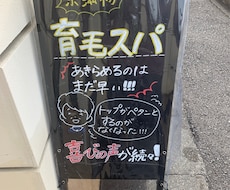 育毛スパ
あきらめるのは
まだ早い!!!
トップがペタンと
するのが
なくなった!!!
喜びの声が続々!